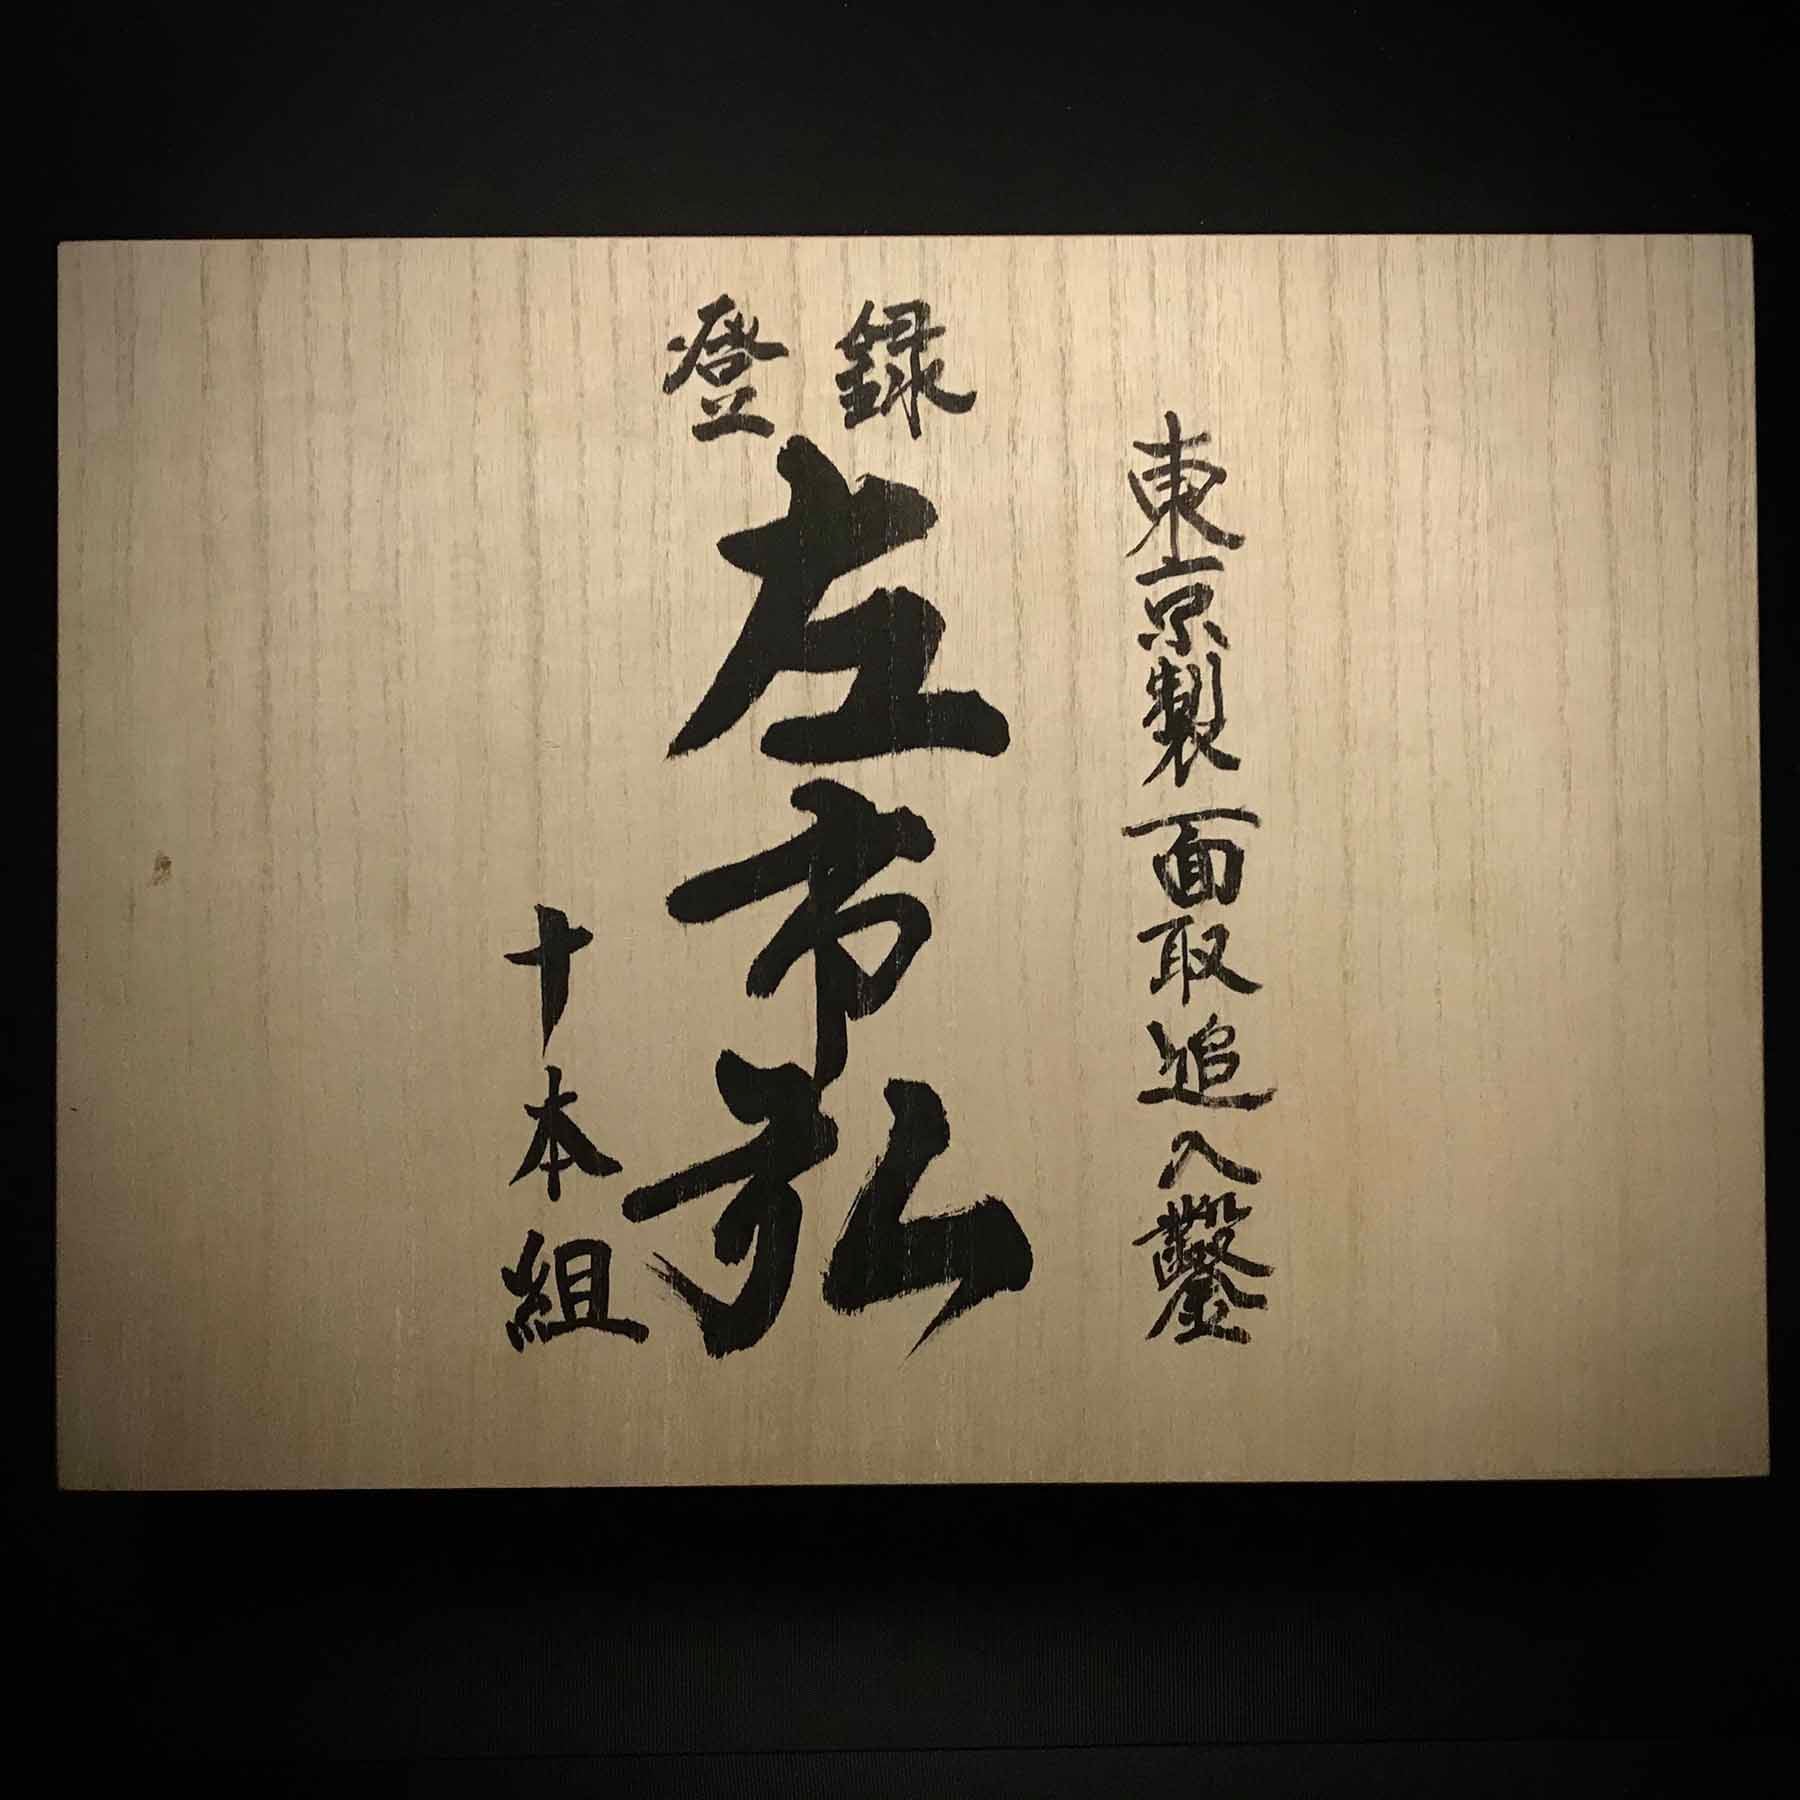 東京製面取追入鑿
登録
左市弘
十本組